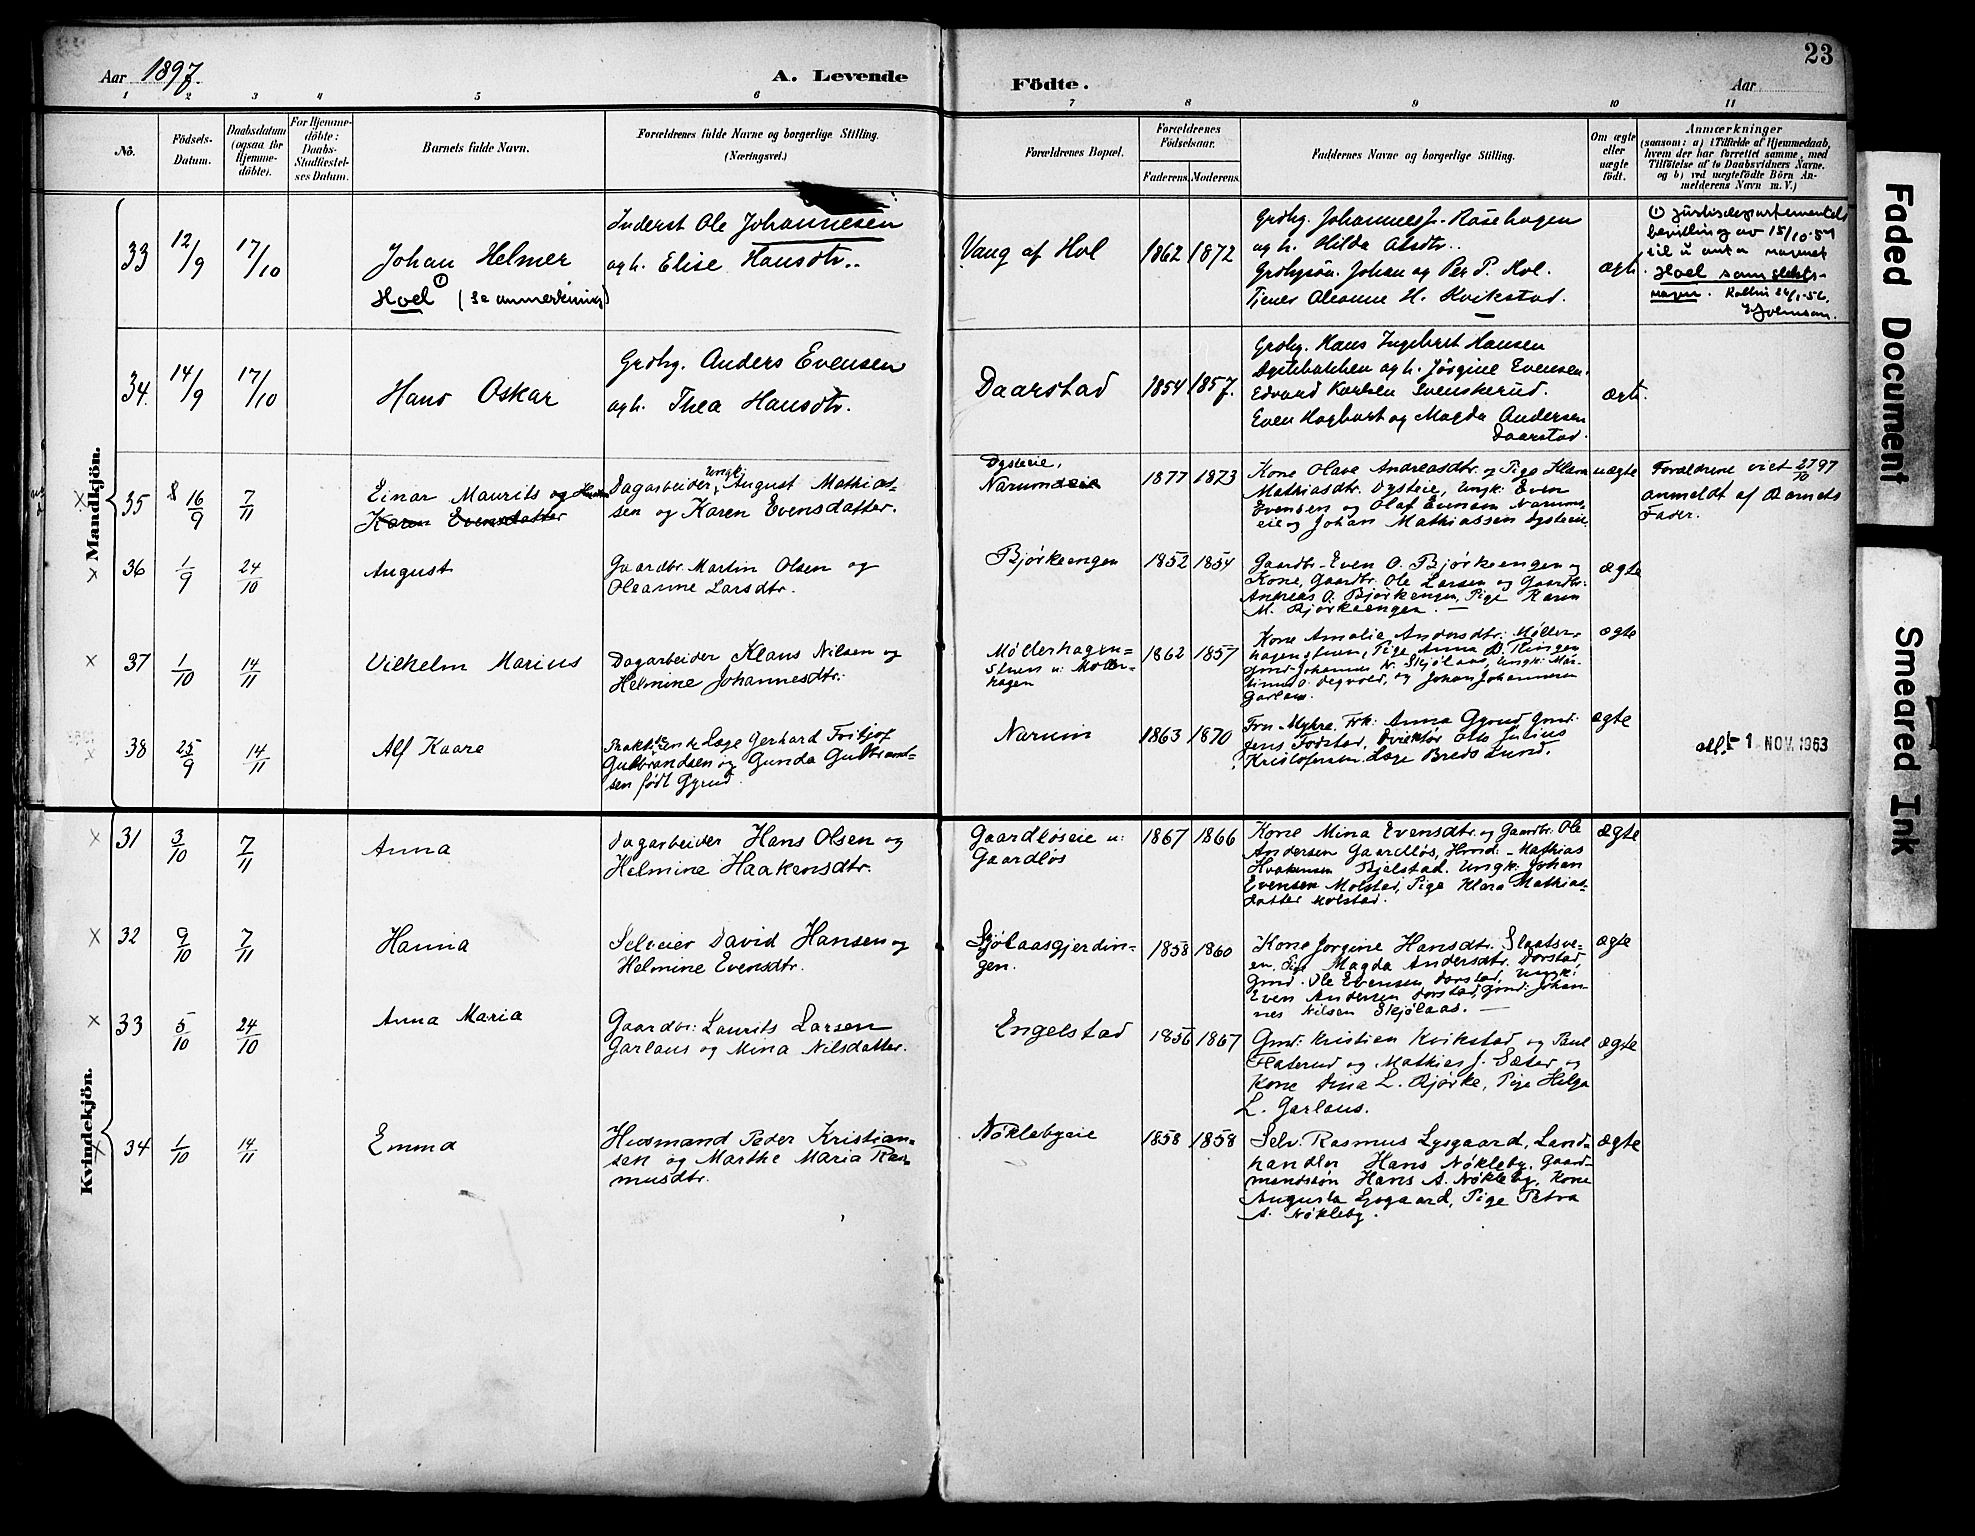 23
Aar 1897.
A. Levende
Födte.
Aar
1 2 3 4 5 6 7 8 9 10 11
No.
Födsels-Datum.
Daabsdatum (ogsaa for Hjemmedöbte).
For Hjemmedöbte: Daabs-Stadfæstelses Datum.
Barnets fulde Navn.
Forældrenes fulde Navne og borgerlige Stilling.
(Næringsvei.)
Forældrenes Bopæl.
Forældrenes Födselsaar.
Faderens. Moderens.
Faddernes Navne og borgerlige Stilling.
Om ægte eller uægte födt.
Anmærkninger
(saasom: a) i Tilfælde af Hjemmedaab, hvem der har forrettet samme, med Tilföielse af to Daabsvidners Navne. og b) ved uægtefödte Börn Anmelderens Navn m. V.)
Mandkjön.
33 12/9 17/10
Johan Helmer
Hoel ① (se anmerkning)
Inderst Ole Johannesen
og h. Elise Hansdtr.
Vang af Hol
1862 1872
Grdbg. Johannes J. Rösehagen
og h. Hilda Olsdtr.
Grdbgsøn. Johan og Per P. Hol.
Tjener Oleanne H. Kvikstad.
ægte
① Justisdepartementets
bevilling av 15/10-54
til å anta navnet
Hoel som slekts-
navn. Kolbu 24/1-56.
34. 14/9 17/10
Hans Oskar
Grdbg. Anders Evensen
og h. Thea Hansdtr.
Daarstad
1854 1857.
Grdbg. Hans Ingebret Hansen
Dystebakken og h. Jørgine Evensen.
Edvard Karlsen Evenskerud.
Even Hagbart og Magda Andersen
Daarstad.
ægte.
35 16/9 7/11
Einar Maurits
Karen Evensdatter
Dagarbeider, Ungk. August Mathias-
sen og Karen Evensdatter.
Dysteie,
Narumeie
1877 1873
Kone Olave Andreasdtr. og Pige Klara
Mathiasdtr. Dysteie, Ungk. Even
Evensen og Olaf Evensen Narums-
eie og Johan Mathiassen Dysteie
uægte
Forældrene viet 27/10 97
anmeldt af Barnets
Fader.
36 1/9 24/10
August
Gaardbr. Martin Olsen og
Oleanne Larsdtr.
Bjørkeengen
1852 1854
Gaardbr. Even O. Bjørkeengen og
Kone, Gaardbr. Ole Larsen og Gaardbr.
Andreas O. Bjørkengen, Pige Karen
M. Bjørkeengen.
ægte
37 1/10 14/11
Vilhelm Marius
Dagarbeider Klaus Nilsen og
Helmine Johannesdtr.
Møllerhagen-
stuen u. Møller-
hagen
1862 1857
Kone Amalie Andersdtr. Møller-
hagenstuen, Pige Anna D. Ringen
Gmd. Johannes N. Skjølaas, Ungk. Mar-
tinus O. Degvold, og Johan Johannesen
Garlaus.
ægte
38 25/9 14/11
Alf Kaare
Praktis. Læge Gerhard Fritjof
Gulbrandsen og Gunda Gulbrand-
sen født Gjerud.
Narum
1863 1870
Fru Myhre, Frk. Anna Gjerud, Gmd.
Jens Fodstad, Direktør Otto Julius
Kristofersen, Læge Brede Lund.
ægte
- 1 NOV. 1963
Kvindekjön.
31 3/10 7/11
Anna
Dagarbeider Hans Olsen og
Helmine Haakensdtr.
Gaardløseie u.
Gaardløs
1867 1866
Kone Mina Evensdtr. og Gaardbr. Ole
Andersen Gaardløs, Hmd. Mathias
Haakensen Bjelstad. Ungk. Johan
Evensen Molstad, Pige Klara Mathias-
datter Molstad.
ægte
32 9/10 7/11
Hanna
Selveier David Hansen og
Helmine Evensdtr.
Skjølaasgjerdin-
gen.
1858 1860
Kone Jørgine Hansdtr. Slaatsve-
en, Pige Magda Andersdtr. Dorstad,
Gmd. Ole Evensen, Dorstad, Ungk.
Even Andersen Dorstad, Gmd. Johan-
nes Nilsen Skjølaas.
ægte
33 5/10 24/10
Anna Maria
Gaardbr. Laurits Larsen
Garlaus og Mina Nilsdatter.
Engelstad
1856 1867
Gmd. Kristian Kvikstad og Paul
Flaterud og Mathias J. Sæter og
Kone Dina L. Bjørke, Pige Helga
L. Garlaus.
ægte
34 1/10 14/11
Emma
Husmand Peder Kristian-
sen og Marthe Maria Ras-
musdtr.
Nøklebyeie
1858 1858
Selv. Rasmus Lysgaard, Land-
handler Hans Nøkleby, Gaard-
mandssøn Hans A. Nøkleby, Kone
Augusta Lysgaard, Pige Petra
A. Nøkleby.
ægte
Faded Document
Smeared Ink